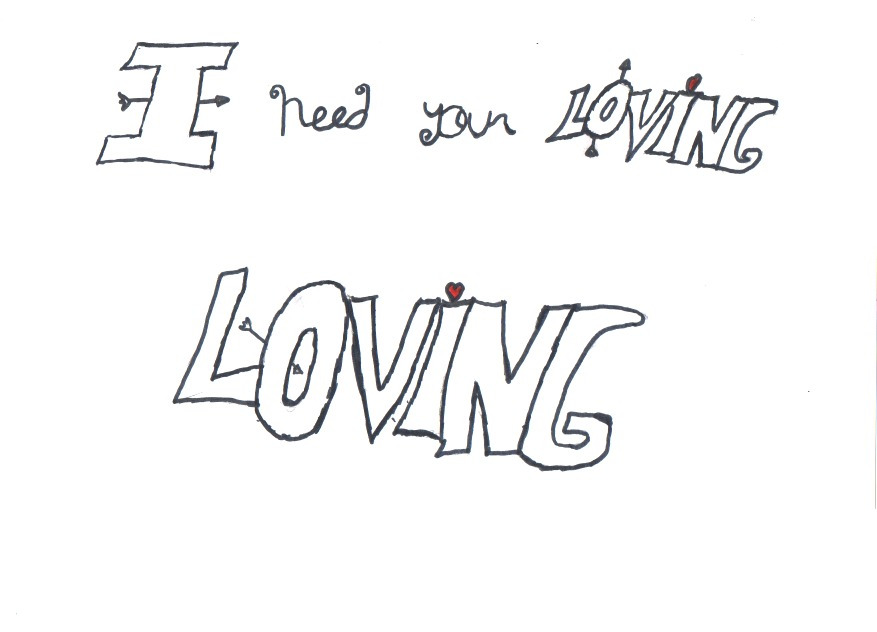 I need your LOVING
LOVING